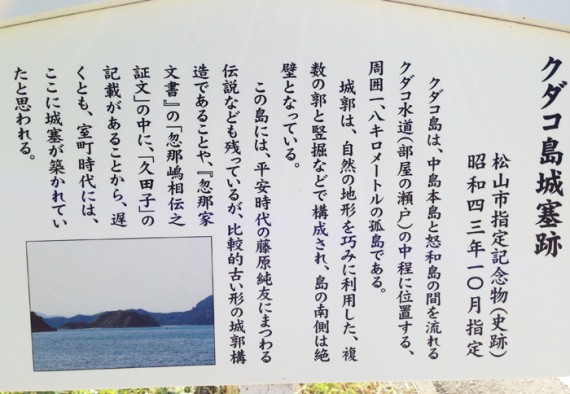 クダコ島城塞跡
松山市指定記念物(史跡)
昭和四三年一〇月指定
クダコ島は、中島本島と怒和島の間を流れる
クダコ水道(部屋の瀬戸)の中程に位置する、
周囲一、八キロメートルの孤島である。
城郭は、自然の地形を巧みに利用した、複
数の郭と竪掘などで構成され、島の南側は絶
壁となっている。
この島には、平安時代の藤原純友にまつわる
伝説なども残っているが、比較的古い形の城郭構
造であることや、『忽那家
文書』の「忽那嶋相伝之
証文」の中に、「久田子」の
記載があることから、遅
くとも、室町時代には、
ここに城塞が築かれてい
たと思われる。